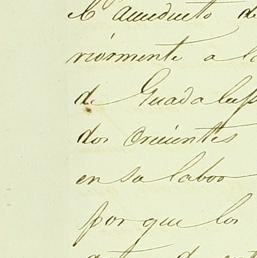 el acueducto de
riormente a la
de Guadalup
dos Orientes
en sa labor
por que los